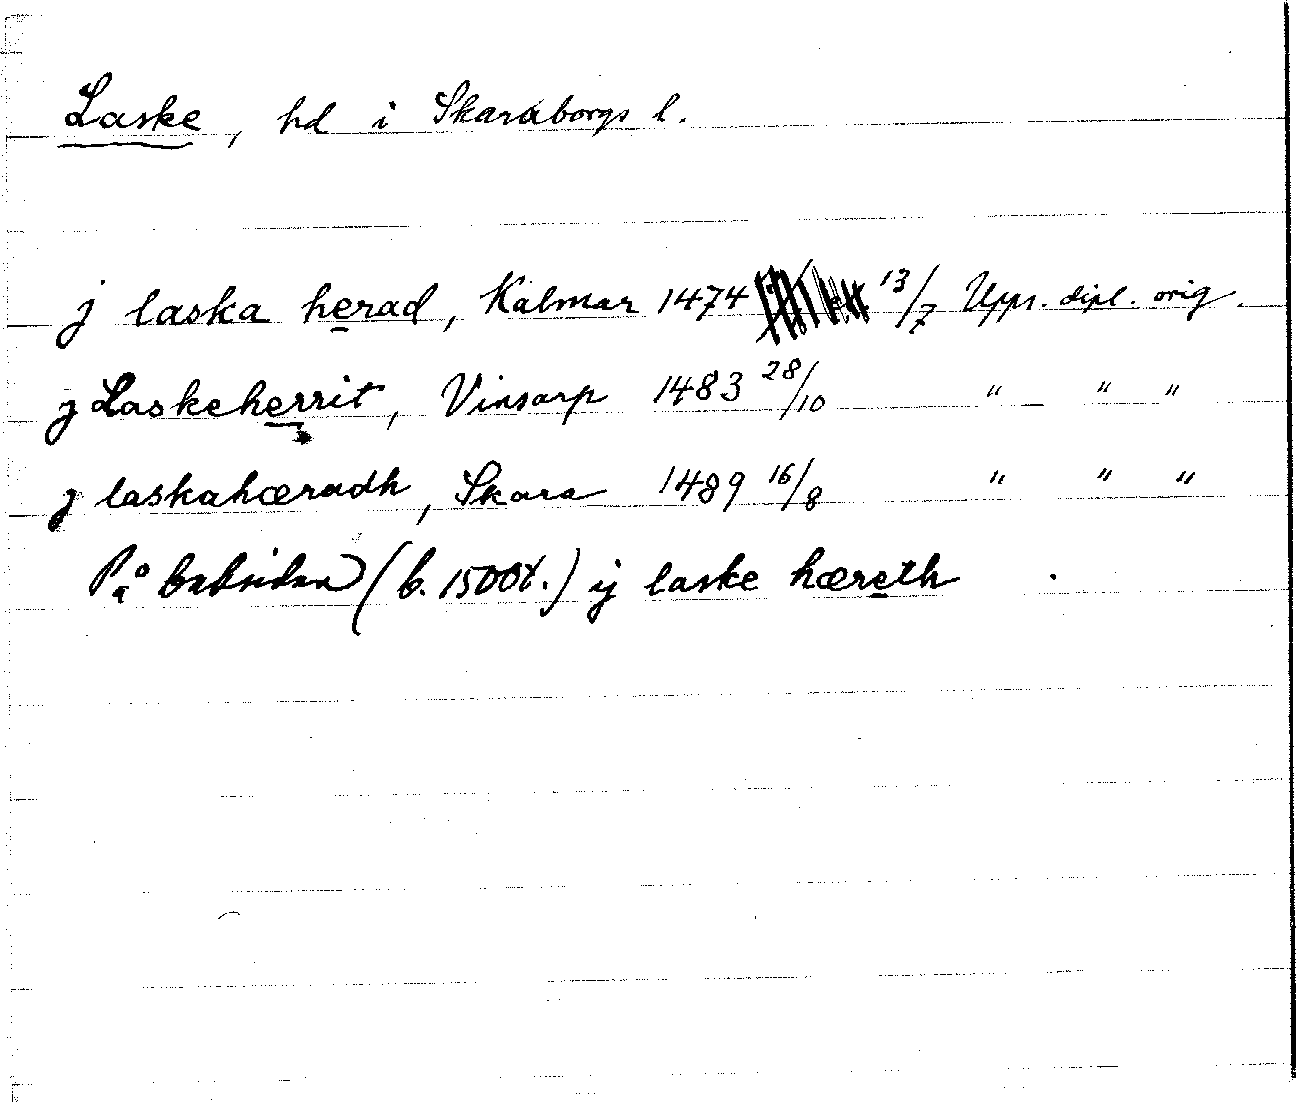 Laske, hd i Skaraborgs l.
j laska herad, Kalmar 1474 13/7 Upps. dipl. orig.
j Laskeherrit, Vinsarp 1483 28/10 " " "
j laskahæradh, Skara 1489 16/8 " " "
På baksidan (b. 1500t.) ij laske hæreth